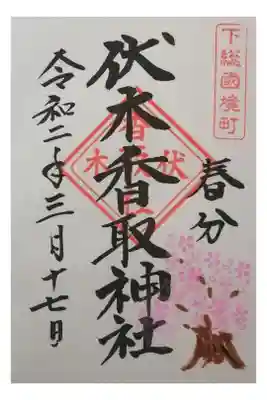 下総國境町
春分
伏木香取神社
令和二年三月十七日